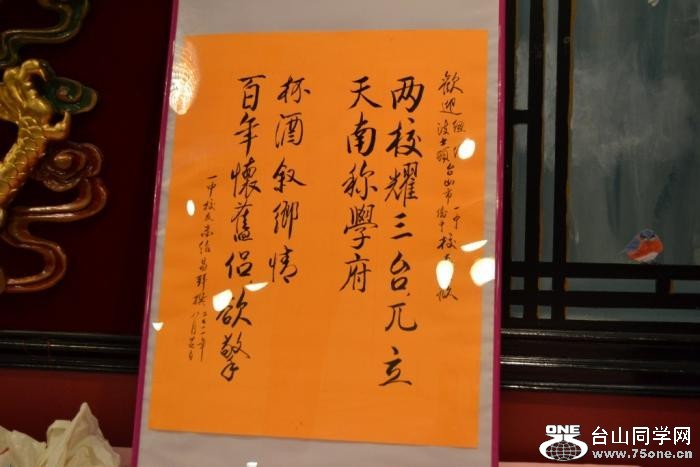 歡迎紐約波士頓台山市一中僑中校友
两校耀三台兀立
天南称學府
杯酒叙鄉情
百年懷舊侣欲擎
一中校友
撰二〇一一年
八月
ONE
台山同学网
www.75one.cn